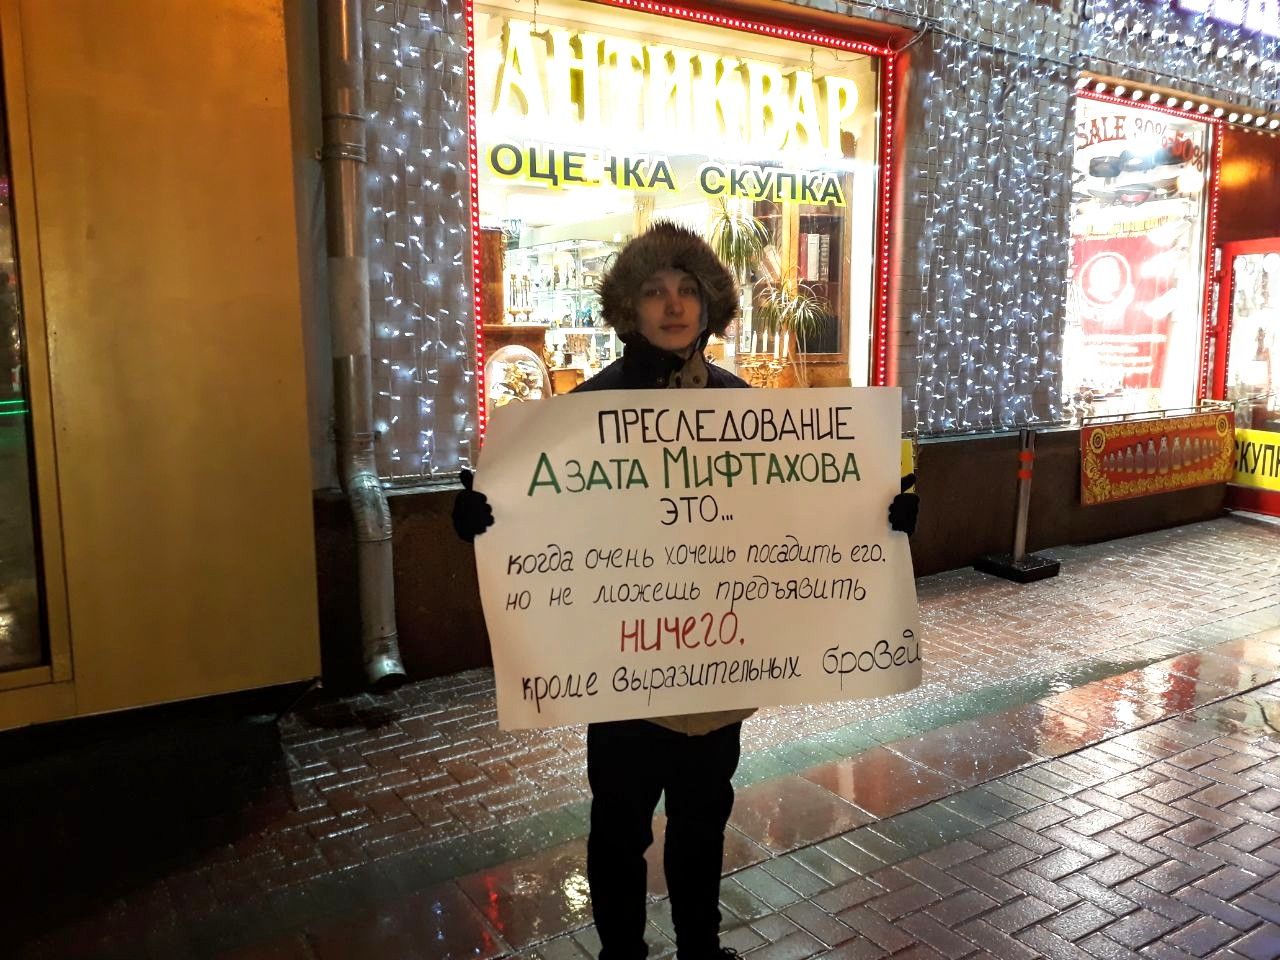 АНТИКВАР
ОЦЕНКА СКУПКА
SALE 30% 50%
ПРЕСЛЕДОВАНИЕ
АЗАТА МИФТАХОВА
ЭТО...
когда очень хочешь посадить его,
но не можешь предъявить
ничего,
кроме выразительных бровей
СКУПК